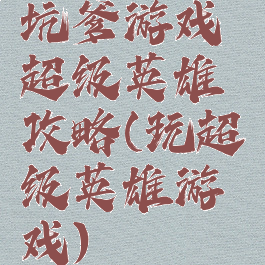 坑爹游戏
超级英雄
攻略(玩超
级英雄游
戏)